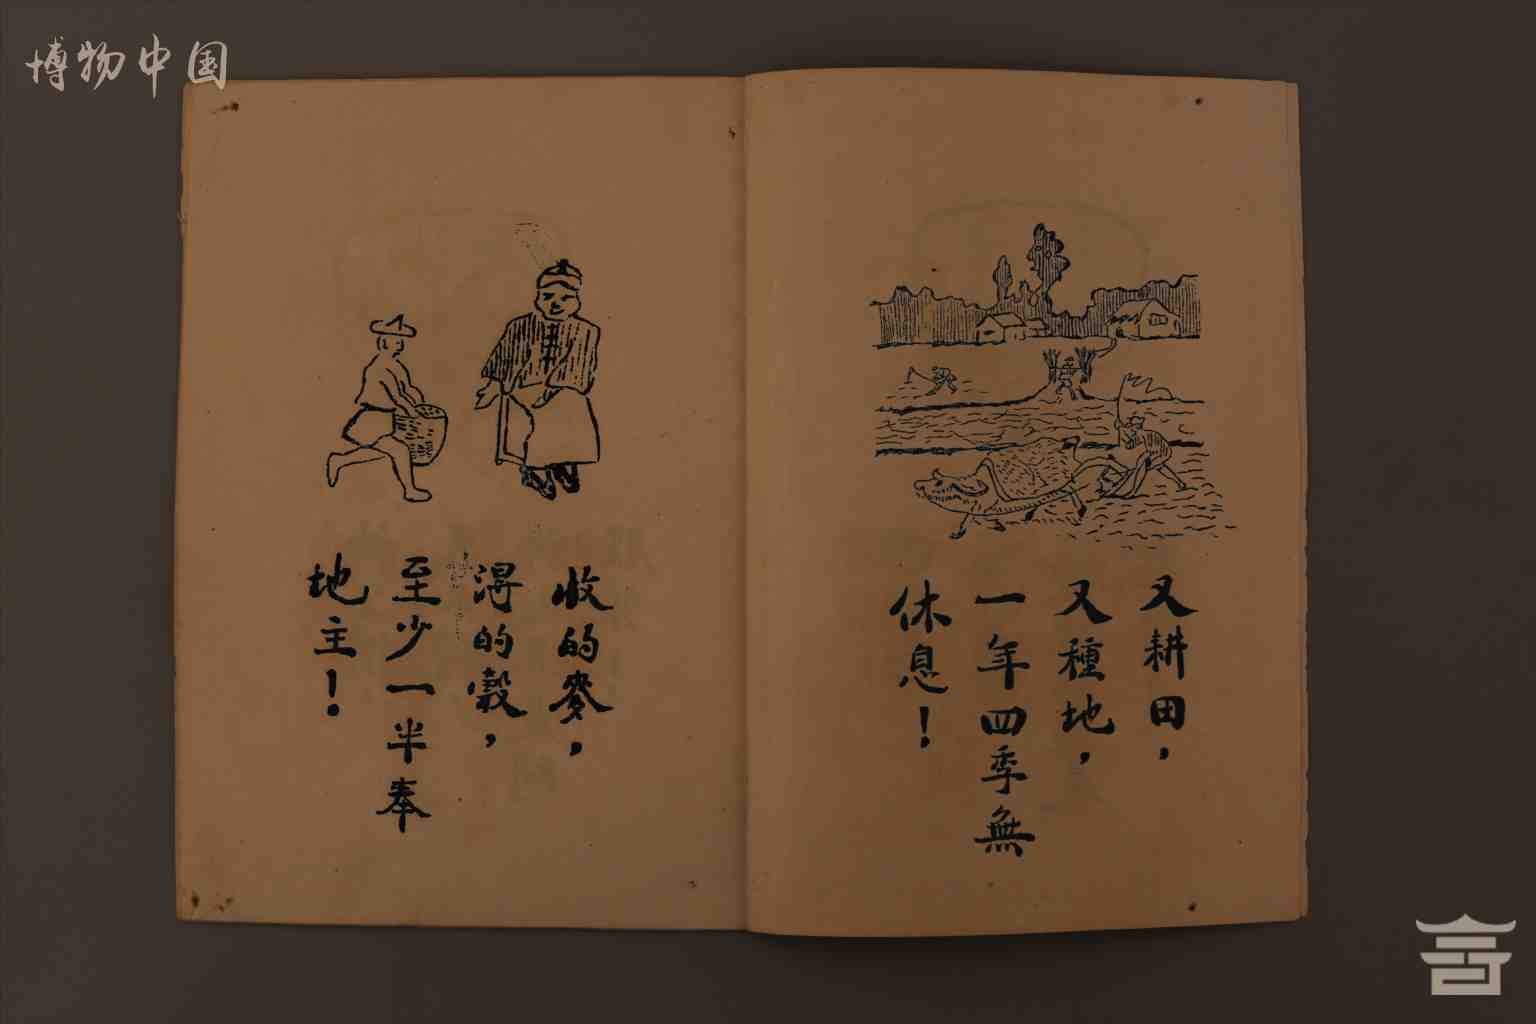 博物中国
又耕田，
又種地，
一年四季無
休息！
收的麥，
得的穀，
至少一半奉
地主！